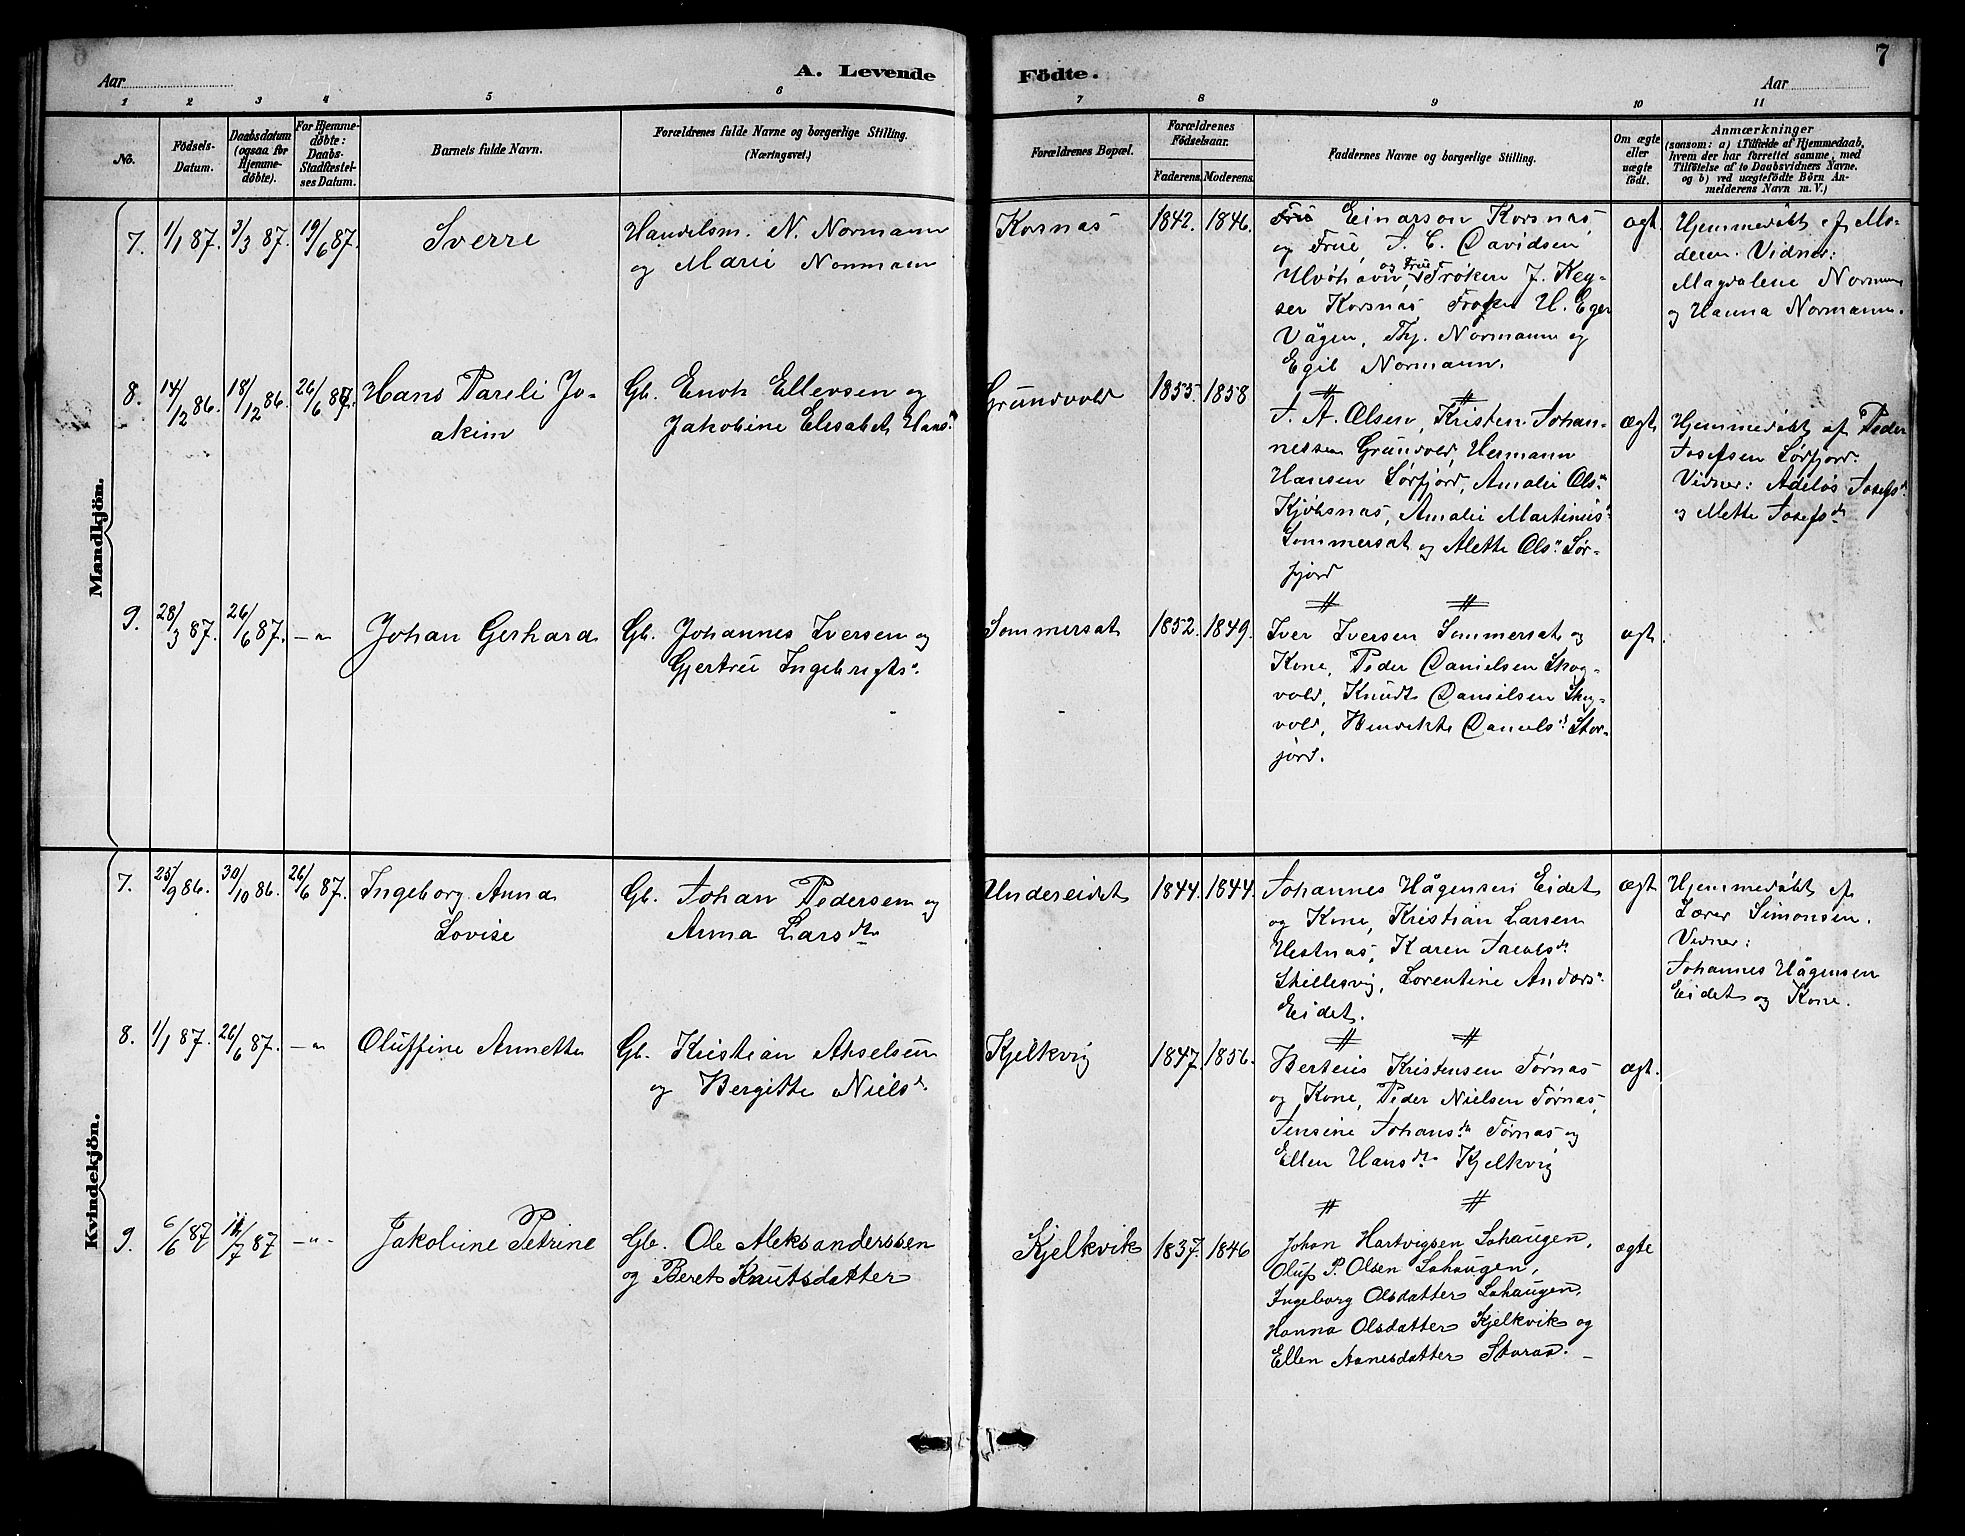 7
Aar
A. Levende
Födte.
Aar
1 2 3 4 5 6 7 8 9 10 11
No.
Födsels-
Datum.
Daabsdatum
(ogsaa for
Hjemme-
döbte).
For Hjemme-
döbte:
Daabs-
Stadfæstel-
ses Datum.
Barnets fulde Navn.
Forældrenes fulde Navne og borgerlige Stilling.
(Næringsvei.)
Forældrenes Bopæl.
Forældrenes
Födselsaar.
Faderens. Moderens.
Faddernes Navne og borgerlige Stilling.
Om ægte
eller
uægte
födt.
Anmærkninger
(saasom: a) i Tilfælde af Hjemmedaab,
hvem der har forrettet samme, med
Tilföielse af to Daabsvidners Navne.
og b) ved uægtefödte Börn An-
melderens Navn m. V.)
Mandkjön.
7. 1/1 87. 3/3 87. 19/6 87.
Sverre
Handelsm. N. Normann
og Marie Normann
Korsnas
1842. 1846.
Frue Einarson Korsnas
og Frue, S. C. Davidsen
Ulvöhavn, og Frue Fröken J. Key-
ser Korsnas, Frøken H. Eger
Vågen, Thj. Normann og
Egil Normann.
ægt
Hjemmedöbt af Mo-
deren. Vidner:
Magdalene Normann
og Hanna Normann.
8. 14/12 86. 18/12 86. 26/6 87.
Hans Pareli Jo-
akim
Gb. Enoh Ellevsen og
Jakobine Elisabet Hansd
Grundvold
1855. 1858
J. A. Olsen, Kristen Johan-
nessen Grundvold, Hermann
Hansen Sørfjord, Amalie Ols.
Kjöbsnas, Amalie Martinus.
Sommersat og Alette Ols. Sør-
fjord
ægt
Hjemmedöbt af Peder
Josefsen Sørfjord.
Vidner: Adelös Josefsd
og Mette Josefsdr
9. 28/3 87. 26/6 87. – " –
Johan Gerhard
Gb. Johannes Iversen og
Gjertru Ingebrigts.
Sommersat
1852. 1849.
Iver Iversen Sommersat og
Kone, Peder Danielsen Skog-
vold, Knudt Danielsen Skog-
vold, Hendrikte Daniels.d Stor-
jord.
ægt
Kvindekjön.
7. 25/9 86. 30/10 86. 26/6 87.
Ingeborg Anna
Lovise
Gb. Johan Pedersen og
Anna Larsdtr
Undereidet
1844. 1844.
Johannes Hågensen Eidet
og Kone, Kristian Larsen
Hestnas, Karen Jacobsdr
Skillesvig, Lorentine Anders.
Eidet.
ægt
Hjemmedöbt af
Lærer Simonsen.
Vidner:
Johannes Hågensen
Eidet og Kone.
8. 1/1 87. 26/6 87. – " –
Oluffine Annette
Gb. Kristian Akselsen
og Bergitte Nielsd.
Kjelkvig
1847. 1856.
Berteus Kristensen Tørnas
og Kone, Peder Nielsen Tørnas,
Jensine Johansdr Tørnas og
Ellen Hansdtr Kjelkvig
ægt.
9. 6/6 87 11/7 87 – " –
Jakobine Petrine
Gb. Ole Aleksanderssen
og Beret Knutsdatter
Kjelkvik
1837. 1846
Johan Hartvigsen Lohaugen,
Oluf P. Olsen Lohaugen,
Ingeborg Olsdatter Lohaugen,
Hanna Olsdatter Kjelkvik og
Ellen Aanesdatter Storaa. –
ægte